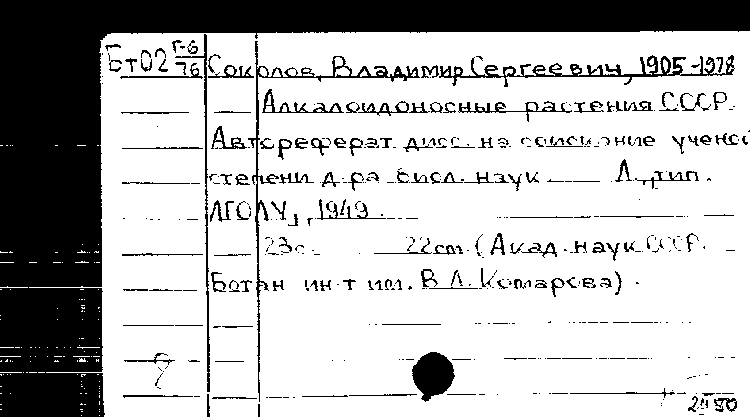 Бт02 Г-6/76 Соколов, Владимир Сергеевич, 1905-1978
Алкалоидоносные растения СССР.
Автореферат дисс. на соискание ученой
степени д-ра биол. наук. Л., тип.
ЛГОЛУ, 1949.
23с. 22см. (Акад. наук СССР.
Ботан ин-т им. В Л. Комарова).